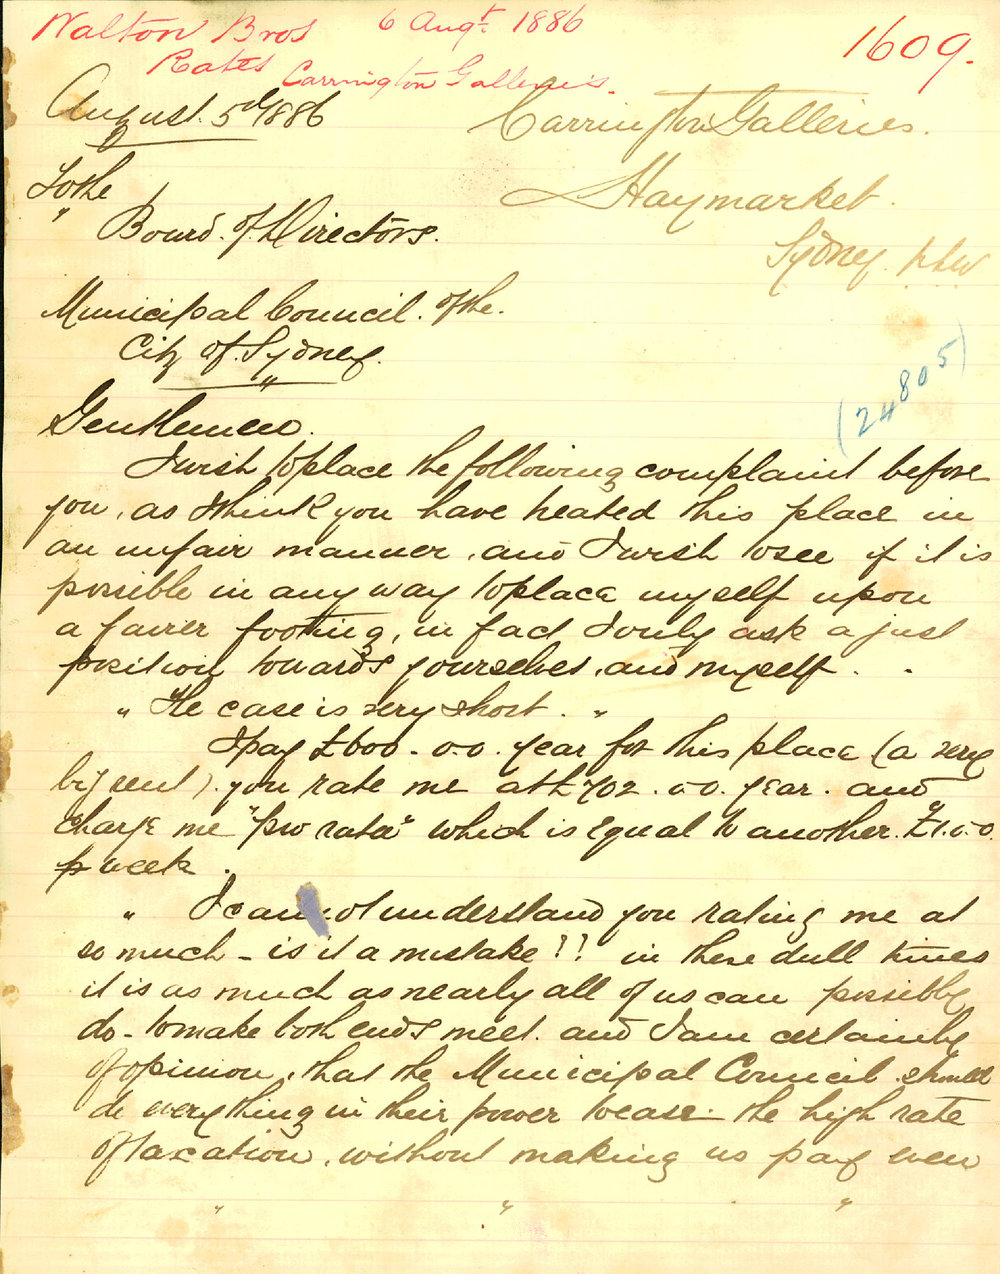 Walton Bros 6 Augt. 1886 1609.
Rates Carrington Galleries.
August. 5th 1886 Carrington Galleries.
To the Haymarket.
Board. of. Directors. Sydney. NSW
Municipal Council. of the.
City of. Sydney.
(24805)
Gentlemen.
I wish to place the following complaint before
you, as I think you have treated this place in
an unfair manner, and I wish to see if it is
possible in any way to place myself upon
a fairer footing, in fact I only ask a just
position towards yourselves, and myself. .
" The case is very short. "
I pay £600-0-0. year for this place (a very
big rent). you rate me at £702.0-0. year. and
charge me "pro rata" which is equal to another. £1.0-0.
p week.
" I cannot understand you rating me at
so much - is it a mistake?? in these dull times
it is as much as nearly all of us can possibly
do - to make both ends meet. and I am certainly
of opinion, that the Municipal Council. should
do everything in their power to ease. the high rate
of taxation, without making us pay even
" " "